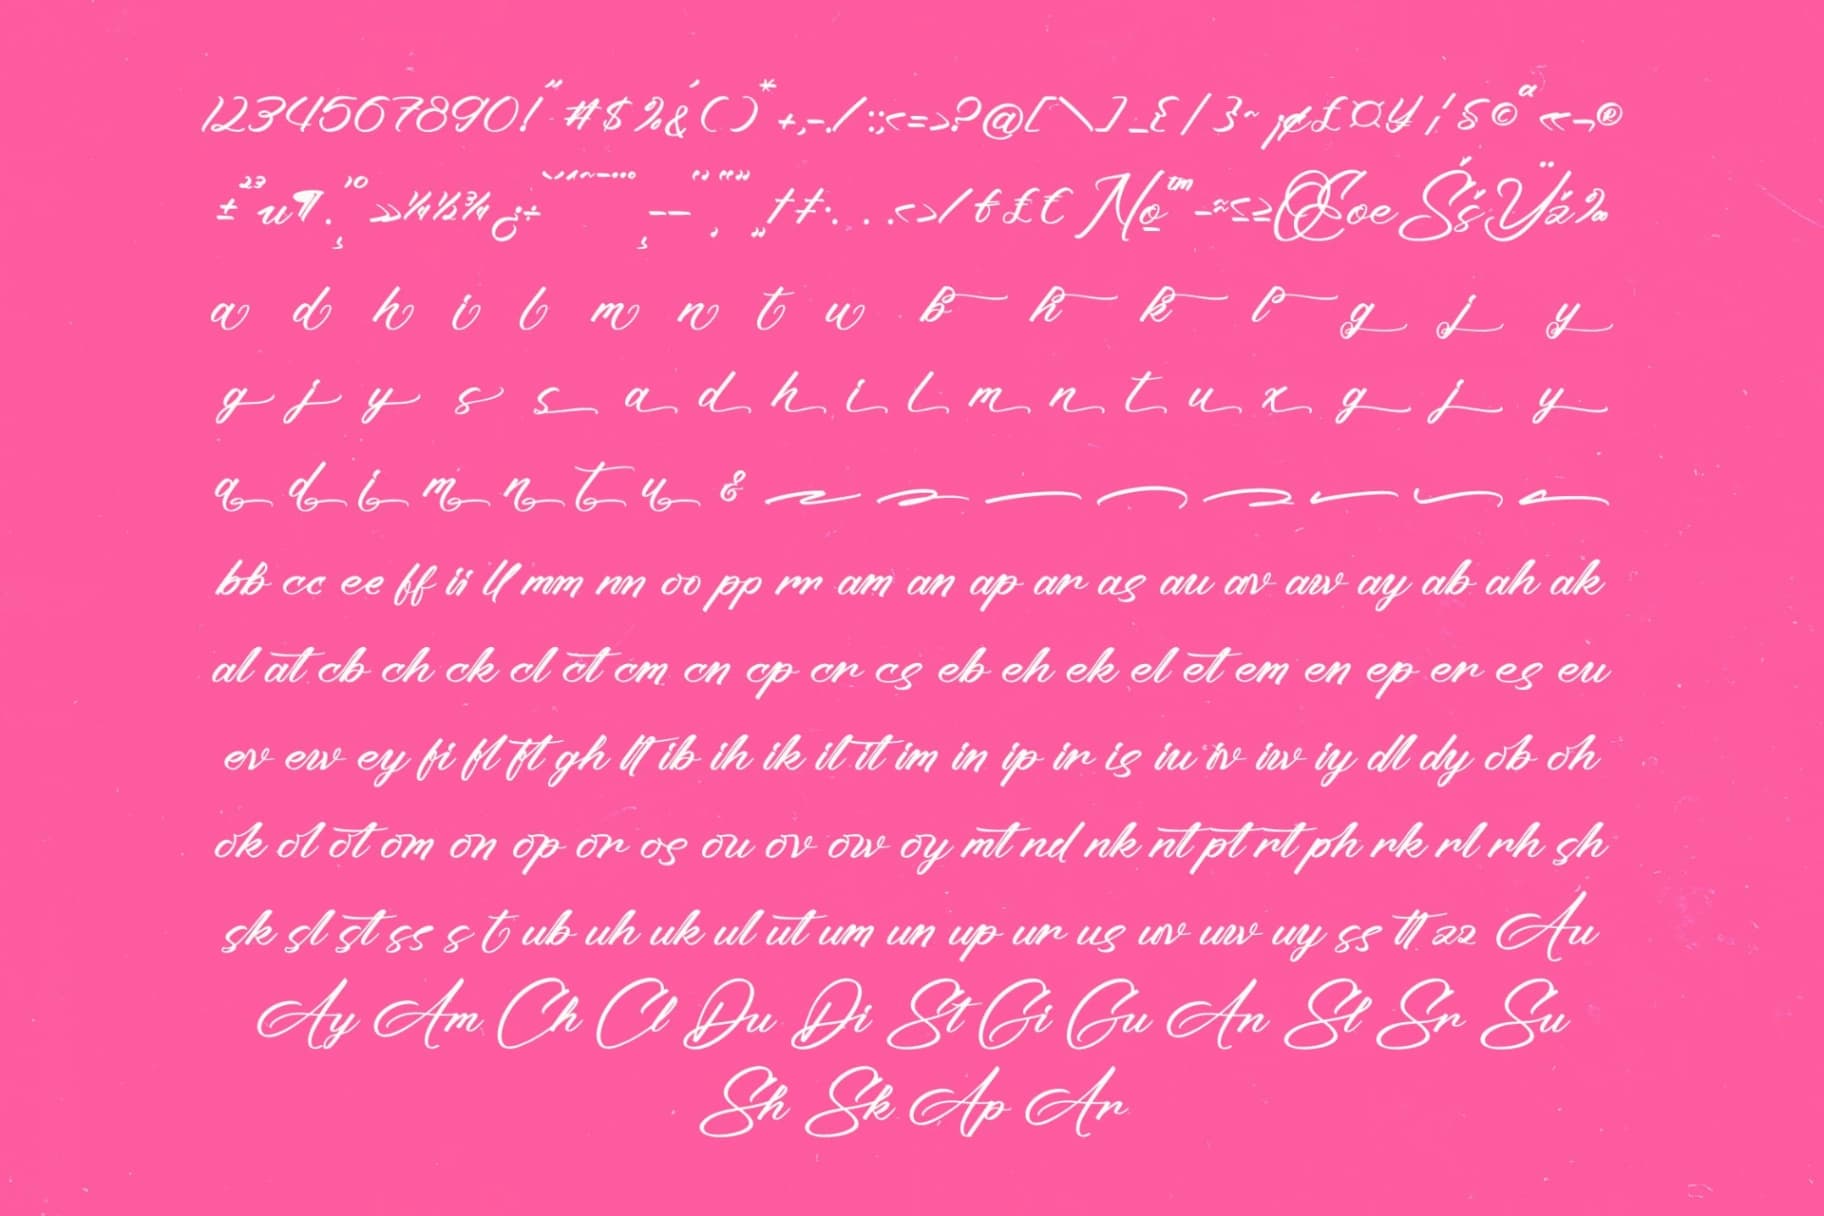 1234567890!"#$%&'()*+,-./:;<=>?@[\]_{|}~¡¢£¤¥¦§©ª«¬®
±²³µ¶·¸¹º»¼½¾¿÷ˆˇ˘˙˚˛˜–—‘’‚“”„†‡•…‹›⁄₣₤€№™−≈≤≥ŒœŠšŸž‰
a d h i l m n t u b h k l g j y
g j y s s a d h i l m n t u x g j y
a d i m n t u &
bb cc ee ff ii ll mm nn oo pp rr am an ap ar as au av aw ay ab ah ak
al at cb ch ck cl ct cm cn cp cr cs eb eh ek el et em en ep er es eu
ev ew ey fi fl ft gh lt ib ih ik il it im in ip ir is iu iv iw iy dl dy ob oh
ok ol ot om on op or os ou ov ow oy mt nd nk nt pt rt ph rk rl rh sh
sk sl st ss s t ub uh uk ul ut um un up ur us uv uw uy ss tt zz Au
Ay Am Ch Cl Du Di St Gi Gu An Sl Sr Su
Sh Sk Ap Ar